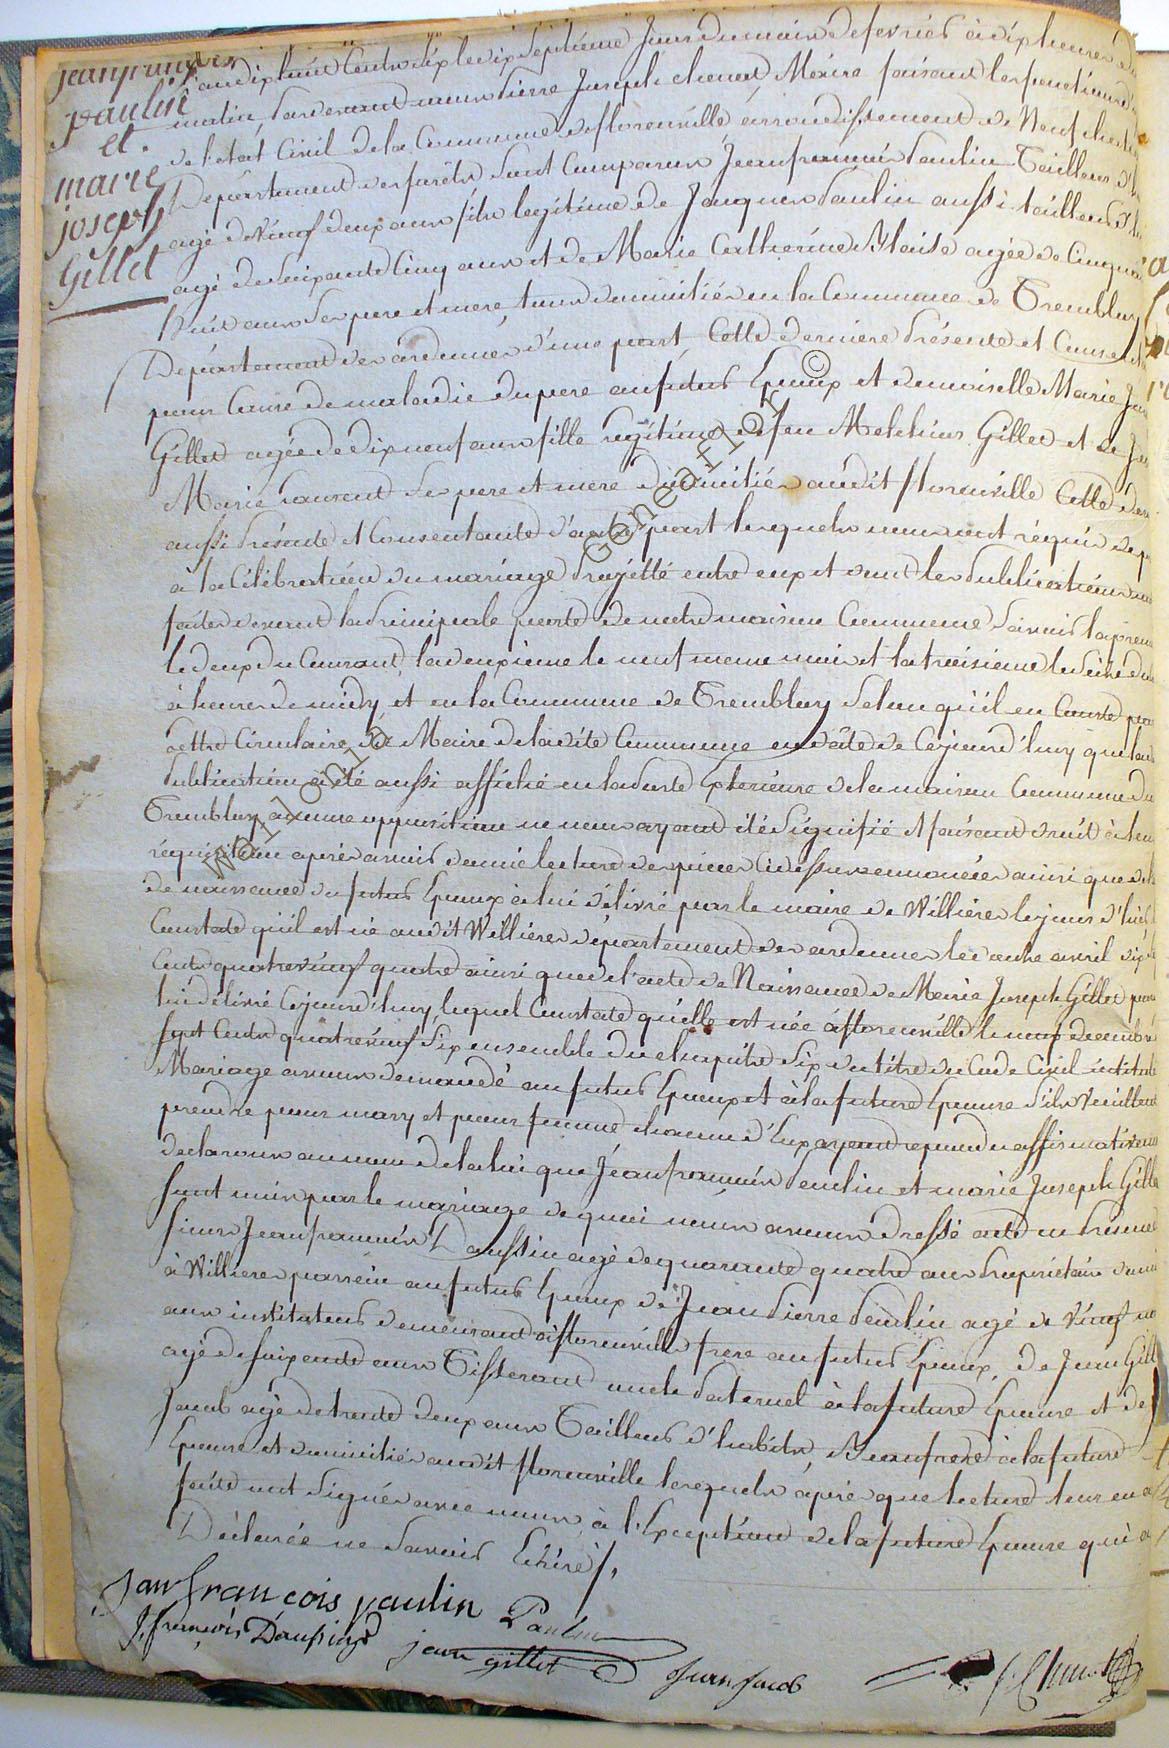 jeanfrançois
paulin
et.
marie
joseph
Gillet
L'an dix huit Cents six le dix septième Jour du mois de fevrier à dix heures du
matin, Pardevant nous Pierre Joseph Maire faisant les fonctions
de l'etat Civil de la Commune de florenville arrondissement de Neufchate
Departement des forêts, sont Comparus Jeanfrancois Paulin Tailleur d'h
agé de vingt deux ans fils legitime de Jacques Paulin aussi tailleur d'h
agé de soixante Cinq ans et de Marie Catherine Blaise agée de Cinqua
huit ans ses pere et mere, tous domiciliés en la Commune de Trembloy
Departement des ardennes d'une part, Cette derniere Présente et Consent
pour Cause de maladie du pere au futur Epoux et demoiselle Marie Jos
Gillet agée de dix neuf ans fille legitime de feu Melchior Gillet et de Je
Marie Laurent ses pere et mere domiciliés audit florenville Cette der
aussi Présente et Consentante d'autre part lesquels nous ont réquis de p
a la Célébration du mariage Projetté entre eux et dont les Publications
faites devant la Principale porte de notre maison Commune Savoir la prem
le deux du Courant, la deuxieme le neuf meme mois et la troisieme le Seize du
à heure de midy et en la Commune de Trembloy Selon qu'il en Conste par
Lettre Circulaire de Maire de ladite Commune en date de Cejourd'huy que la
Publication a été aussi affichée en la Porte Exterieure de la maison Commune de
Trembloy aucune opposition ne nous ayant été Signifié et faisant droit à leur
réquisition après avoir donné lecture des pieces Ci dessus enoncées ainsi que de l
de naissance du futur Epoux à lui délivré par le maire de Williere le jour d'hier
Constate qu'il est né audit Williere département des ardennes le avril
Cents quatrevingt quatre ainsi que de l'acte de Naissance de Marie Joseph Gillet
lui délivré Cejourd'huy lequel Constate qu'elle est née à florenville le decembre
sept Cents quatrevingt Six ensemble du chapitre Six du titre du Code Civil intitulé
Mariage avons demandé au futur Epoux et à la future Epouse S'ils veuillent
prendre pour mary et pour femme chacun d'Eux ayant repondu affirmativem
declarons au nom de la loi que Jeanfrancois Paulin et marie Joseph Gille
Sont unis par le mariage de quoi nous avons dressé acte en Présence
sieur Jeanfrancois Daussin agé de quarante quatre ans Proprietaire
à Williere parrein au futur Epoux de Jean Pierre Paulin agé de vingt
ans instituteur demeurant à florenville frere au futur Epoux, de Jean Gill
agé de soixante ans Tisserand oncle Paternel à la future Epouse et de J
Jacob agé de trente deux ans Tailleur d'habits, Beaufrere à la future
Epouse et domiciliés audit florenville lesquels après que lecture leur en a
faite ont Signés avec nous à l'Exception de la future Epouse qui a
Déclarée ne Savoir Ecrire/.
Jean françois paulin Paulin
J. francois Daussin jean gillet Jean Jacob
Wallonie ©Geneaflor